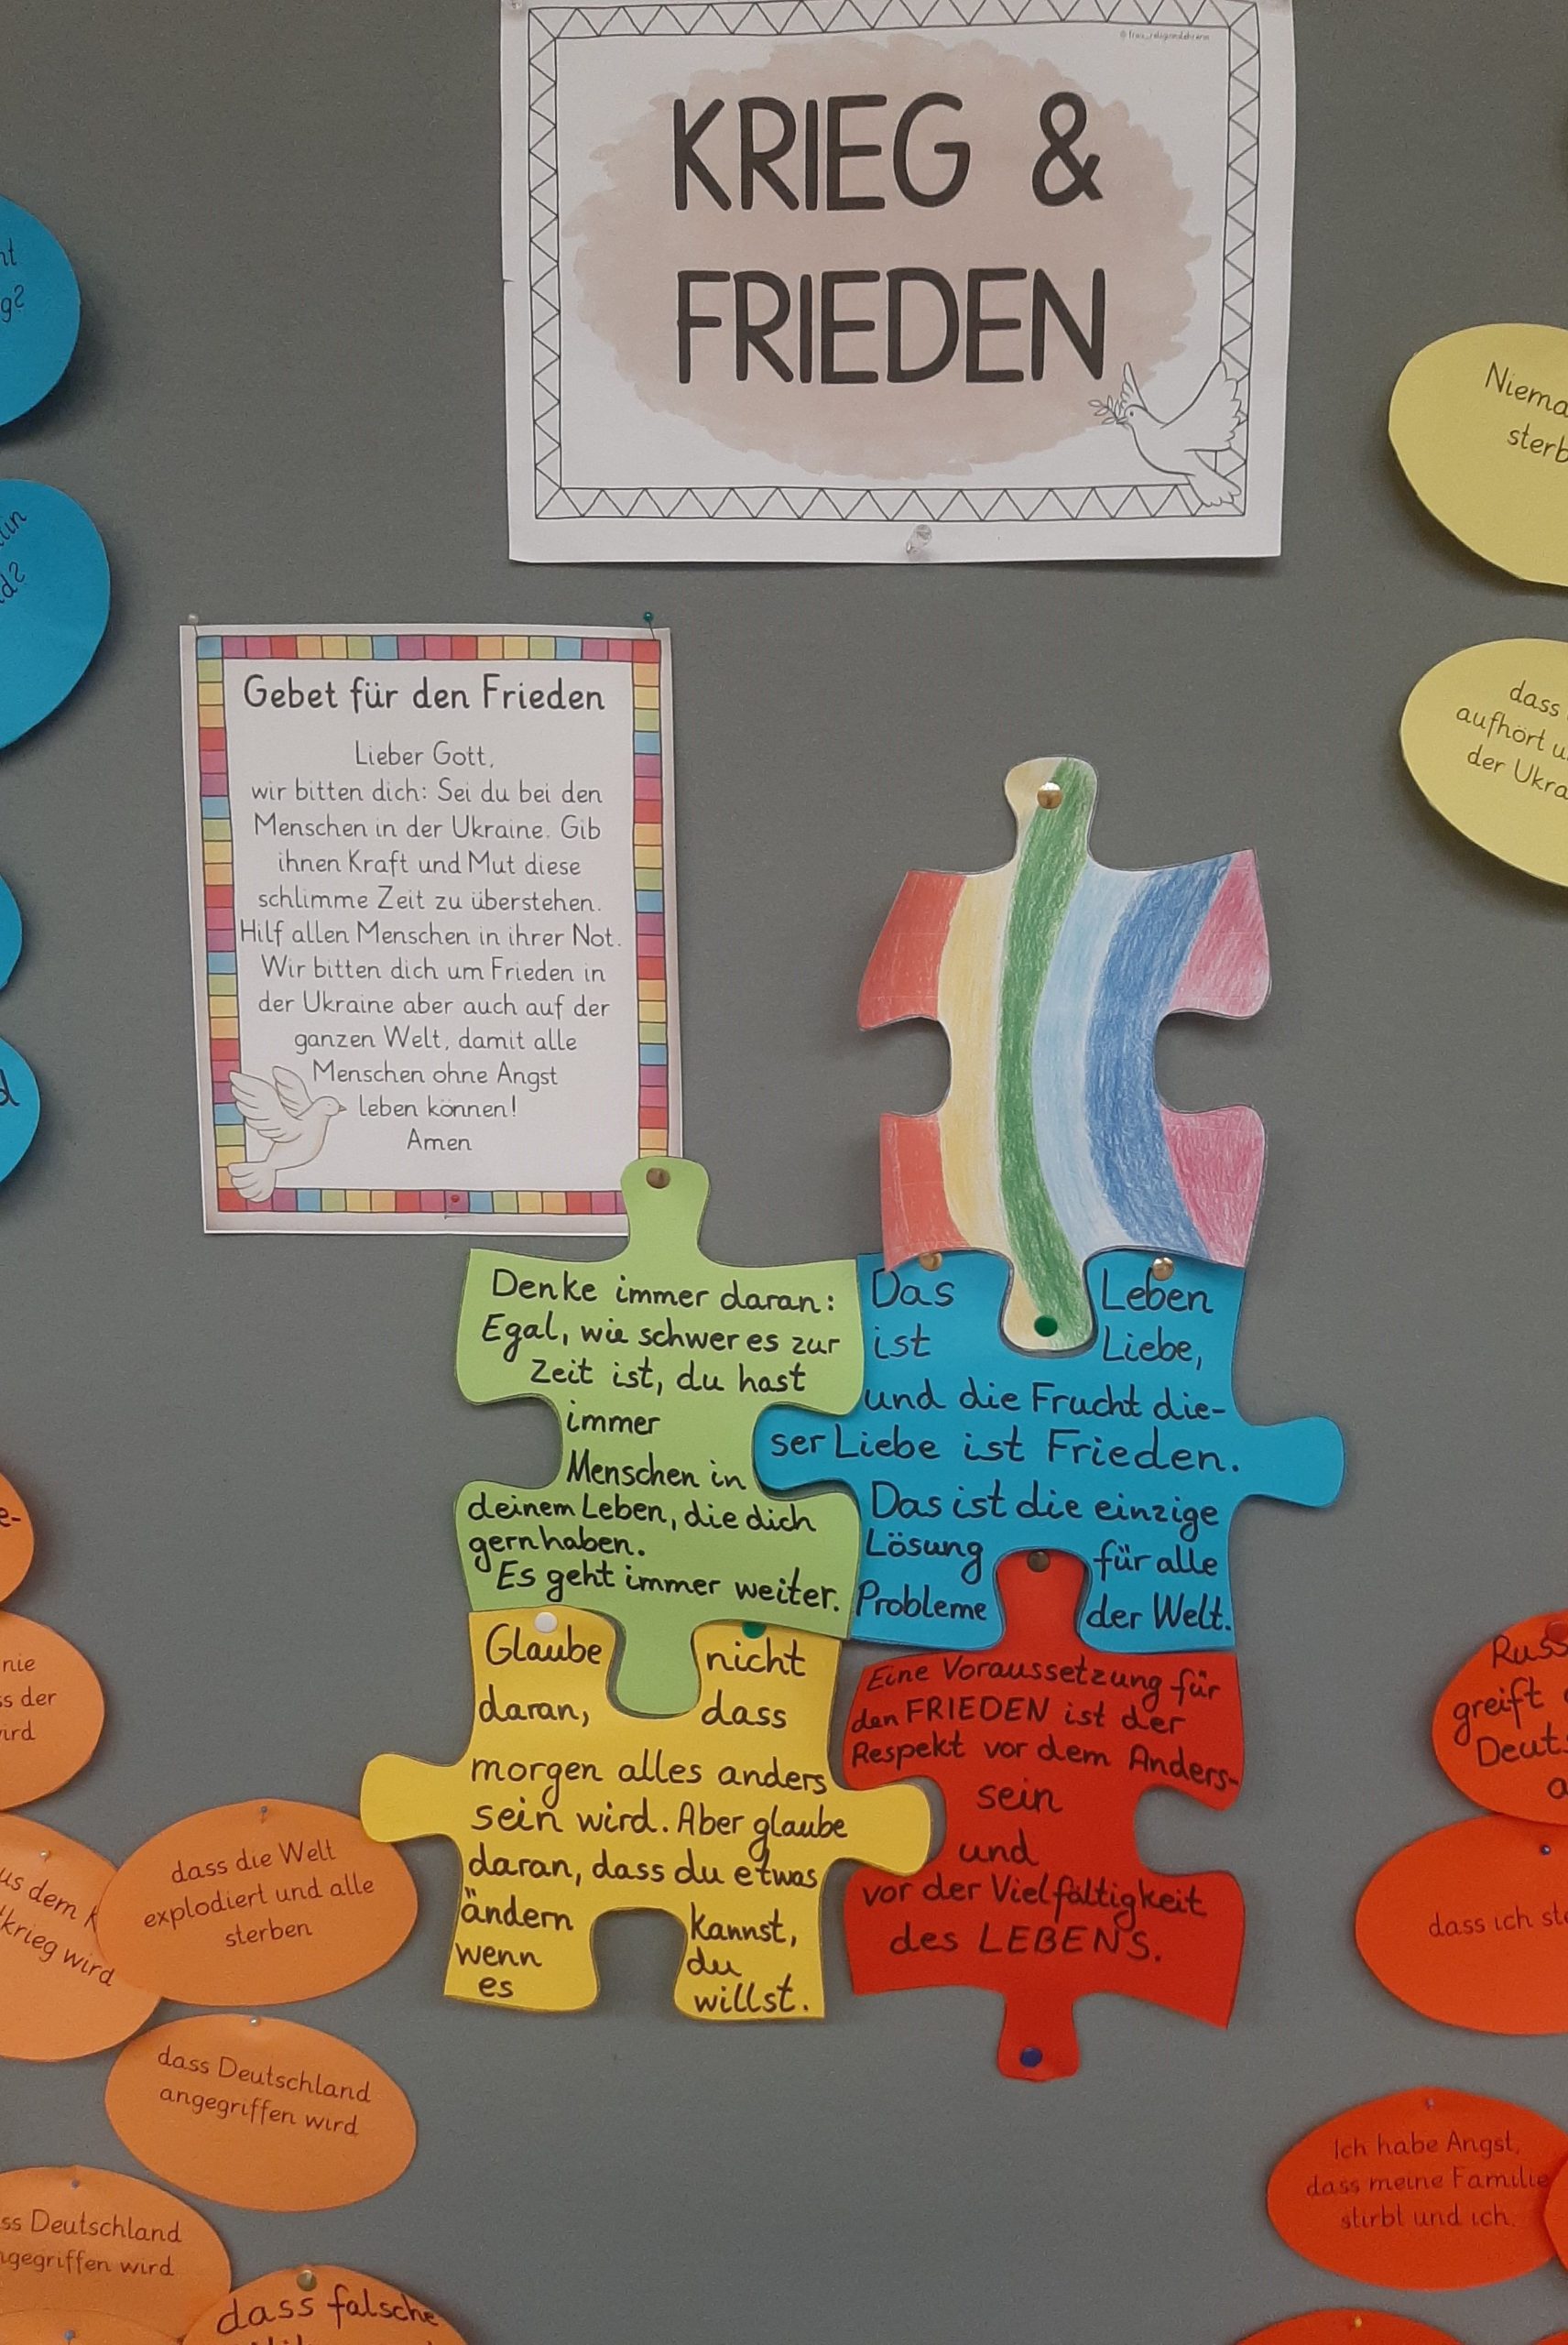 KRIEG &
FRIEDEN
Gebet für den Frieden
Lieber Gott,
wir bitten dich: Sei du bei den
Menschen in der Ukraine. Gib
ihnen Kraft und Mut diese
schlimme Zeit zu überstehen.
Hilf allen Menschen in ihrer Not.
Wir bitten dich um Frieden in
der Ukraine aber auch auf der
ganzen Welt, damit alle
Menschen ohne Angst
leben können!
Amen
Denke immer daran:
Egal, wie schwer es zur
Zeit ist, du hast
immer
Menschen in
deinem Leben, die dich
gernhaben.
Es geht immer weiter.
Das Leben
ist Liebe,
und die Frucht die-
ser Liebe ist Frieden.
Das ist die einzige
Lösung für alle
Probleme der Welt.
Glaube nicht
daran, dass
morgen alles anders
sein wird. Aber glaube
daran, dass du etwas
ändern kannst,
wenn du
es willst.
Eine Voraussetzung für
den FRIEDEN ist der
Respekt vor dem Anders-
sein
und
vor der Vielfältigkeit
des LEBENS.
nie
der
dass die Welt
explodiert und alle
sterben
dem
krieg wird
dass Deutschland
angegriffen wird
Deutschland
wird
dass falsche
dass
aufhört
der
greift
dass ich
Ich habe Angst,
dass meine Familie
stirbt und ich.